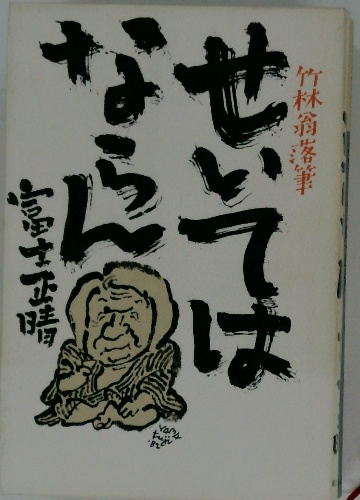 竹林翁落筆
せいては
ならん
富士正晴
'82